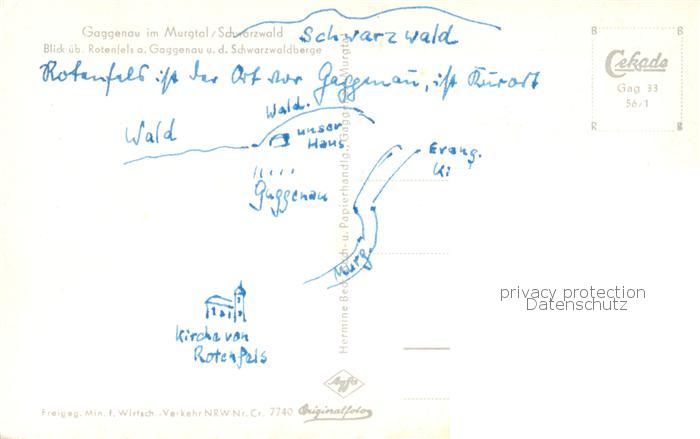 Gaggenau im Murgtal/Schwarzwald
Blick üb. Rotenfels a. Gaggenau u. d. Schwarzwaldberge
Schwarzwald
Rotenfels ist der Ort vor Gaggenau, ist Kurort
Cekade
Gag 33
56/1
Wald
Wald.
unser
Haus
Gaggenau
Evang.
Ki
Murg.
Kirche von
Rotenfels
Hermine Papierhandlg., Gaggenau, Murgtal
privacy protection
Datenschutz
Agfa
Originalfoto
Freigeg. Min. f. Wirtsch.-Verkehr NRW Nr. Cr. 7740
B
B
R
R